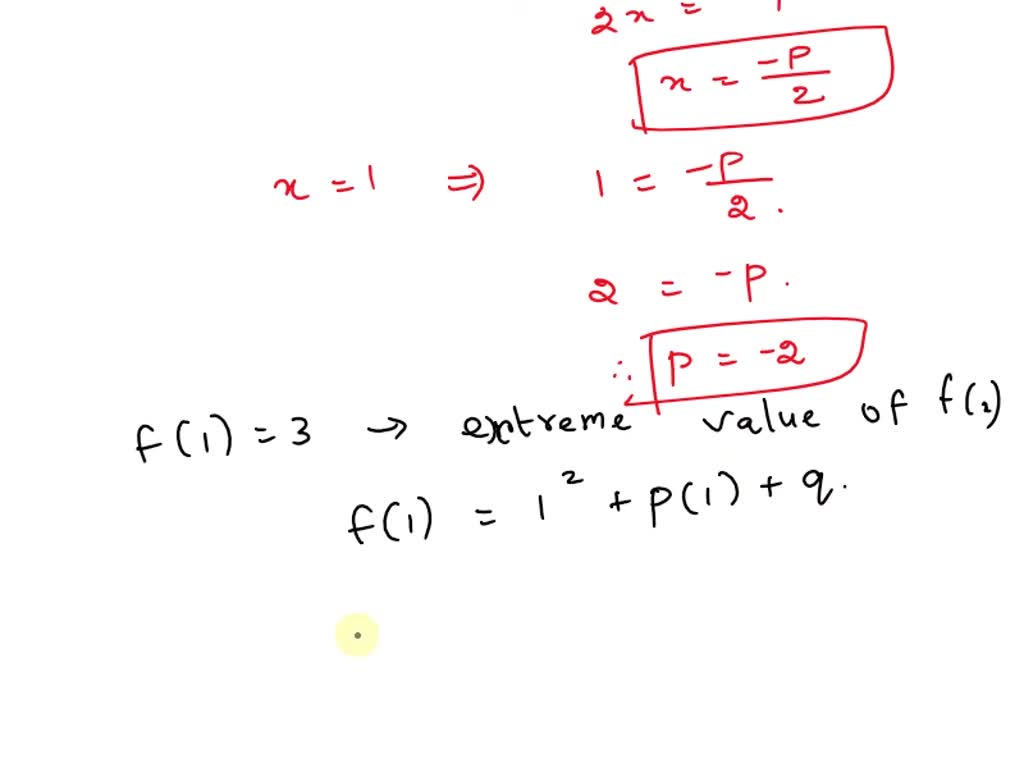 2x =
x = -P/2
x = 1 ⇒ 1 = -P/2.
2 = -P.
∴ P = -2
f(1) = 3 → extreme value of f(2)
f(1) = 1² + P(1) + q.